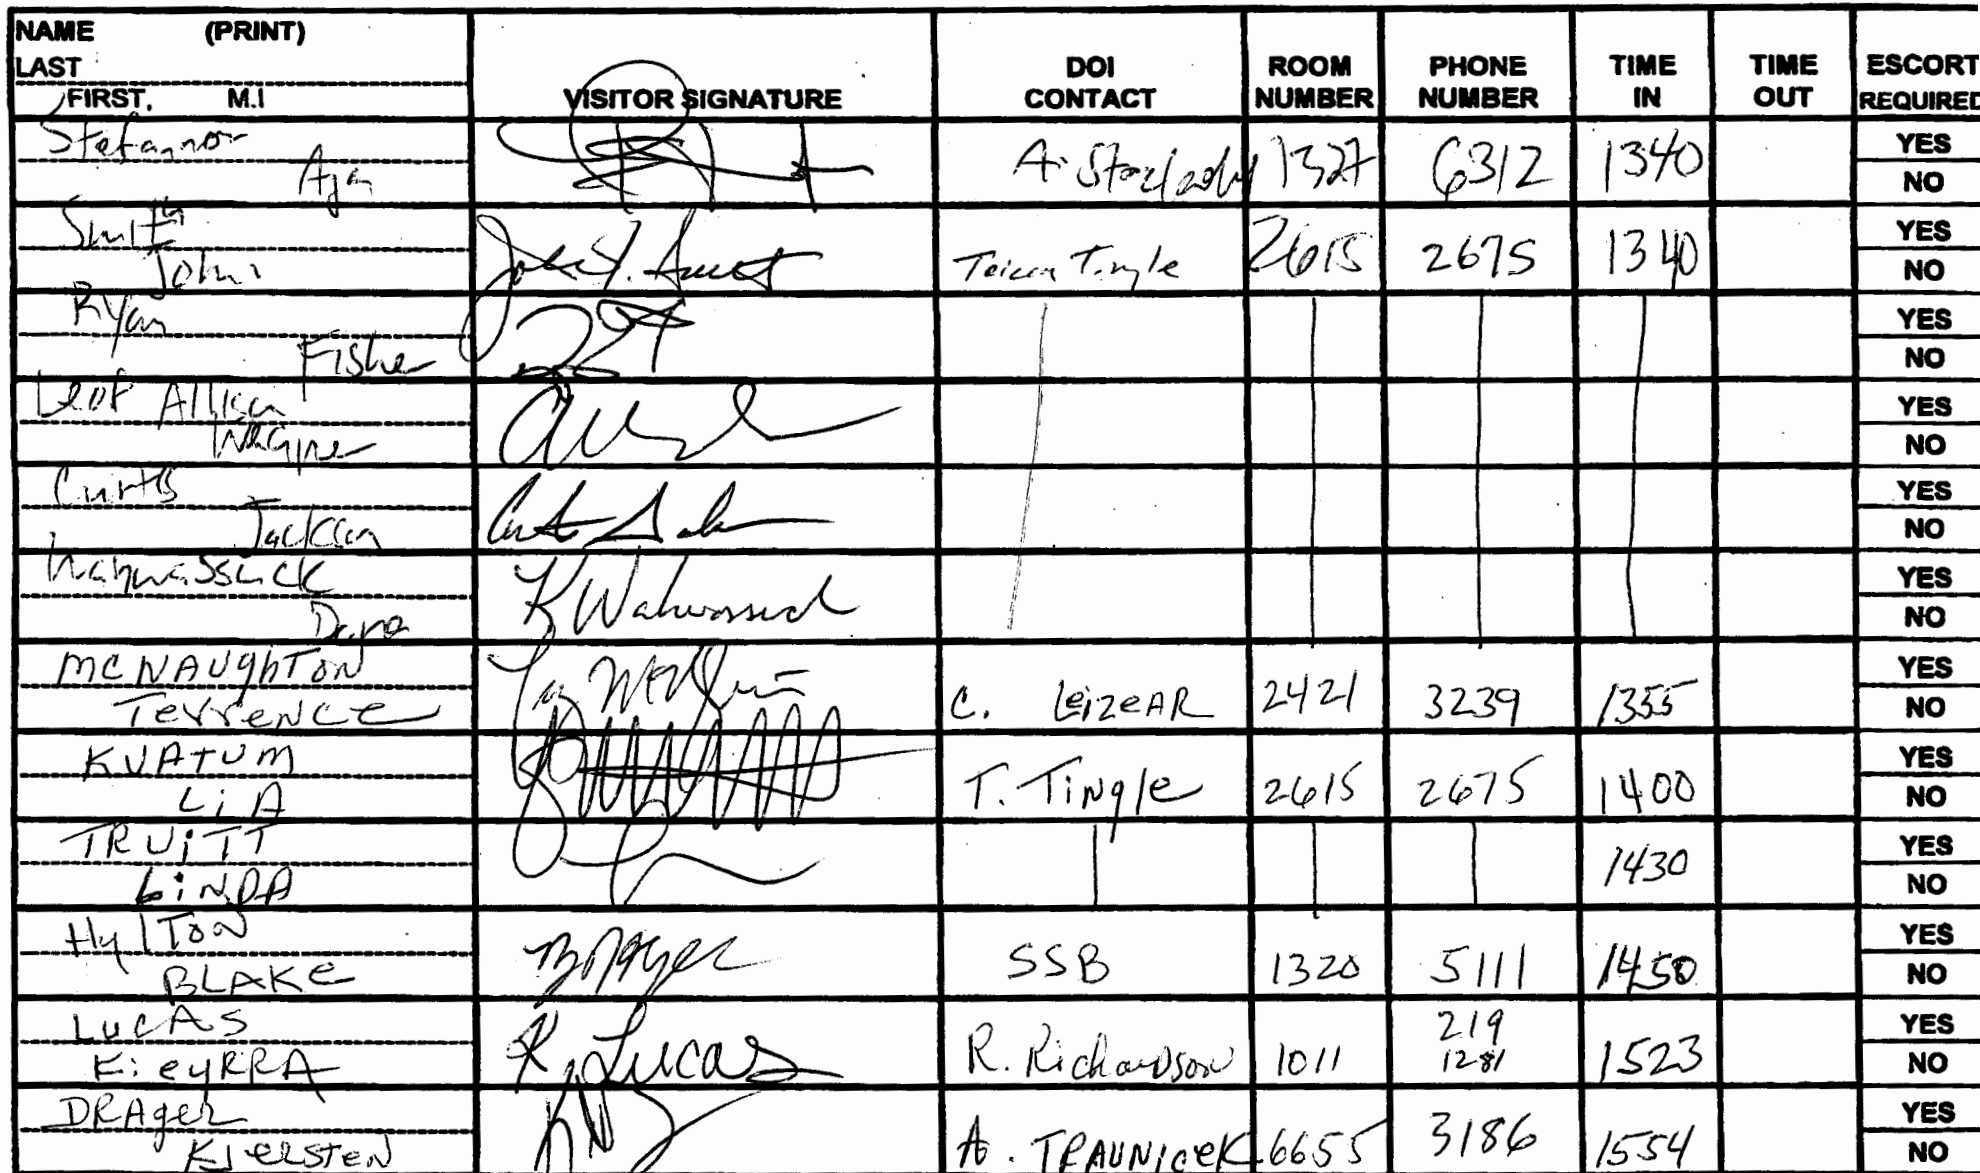 NAME (PRINT)
LAST
FIRST, M.I
VISITOR SIGNATURE
DOI
CONTACT
ROOM
NUMBER
PHONE
NUMBER
TIME
IN
TIME
OUT
ESCORT
REQUIRED
Aja
1327 6312 1340
YES
NO
Smith
John
2615 2675 1340
YES
NO
Ryan
Fisher
YES
NO
Wagner
YES
NO
Curtis
Jackson
YES
NO
YES
NO
MCNAUghTON
TerrENCE
C. LeizeAR 2421 3239 1355
YES
NO
KVATUM
LiA
T. TiNgle 2615 2675 1400
YES
NO
TRUiTT
LiNDA
1430
YES
NO
HylTON
BLAKE
SSB 1320 5111 1450
YES
NO
LUCAS
KieyRRA
K. Lucas
R. RichaRDson 1011 219
1281
1523
YES
NO
DRAgeR
KJeRSTeN
A. TRAUNiceK 6655 3186 1554
YES
NO